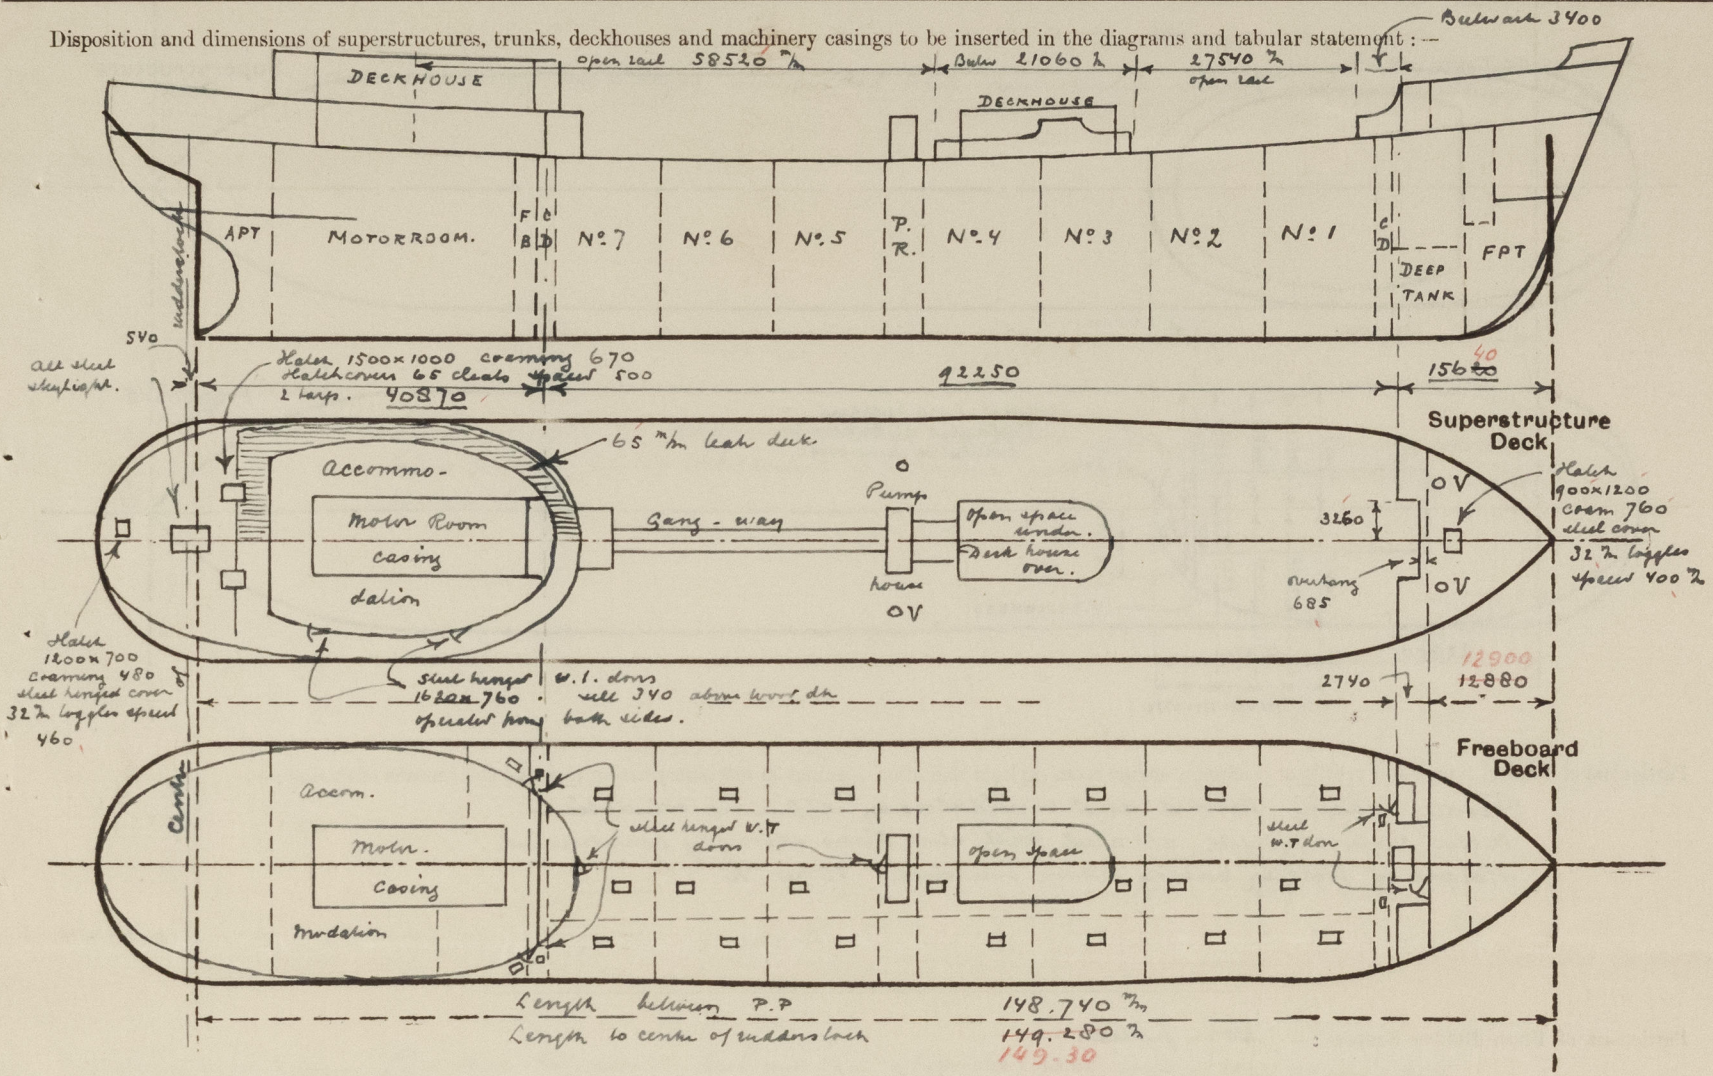 Disposition and dimensions of superstructures, trunks, deckhouses and machinery casings to be inserted in the diagrams and tabular statement : —
Bulwark 3400
open rail 58520 m/m
Bulw 21060 m/m
27540 m/m
open rail
DECKHOUSE
DECKHOUSE
APT
MOTORROOM.
F B
C D
No. 7
No. 6
No. 5
P. R.
No. 4
No. 3
No. 2
No. 1
C D
DEEP
TANK
FPT
rudderstock
540
All steel
skylight.
Hatch 1500x1000 coaming 670
Hatchcovers 65 cleats spaced 500
2 tarps.
40870
92250
40
15680
Superstructure
Deck
65 m/m teak deck
Accommo-
dation
Motor Room
casing
Gang-way
O
Pump
house
OV
open space
under.
Deck house
over.
3260
overhang
685
OV
OV
Hatch
900x1200
coam 760
steel cover
32 m/m toggles
spaced 400 m/m
Hatch
1200x700
coaming 480
steel hinged cover
32 m/m toggles spaced
460
steel hinged W.T. doors
1620x760 sill 340 above wood dk
operated from both sides.
2740
12900
12880
Freeboard
Deck
Centre of
Accom.
modation
Motor.
Casing
steel hinged W.T
doors
open space
steel
W.T door
Length between P.P 148.740 m/m
Length to centre of rudderstock 149.280 m/m
149.30